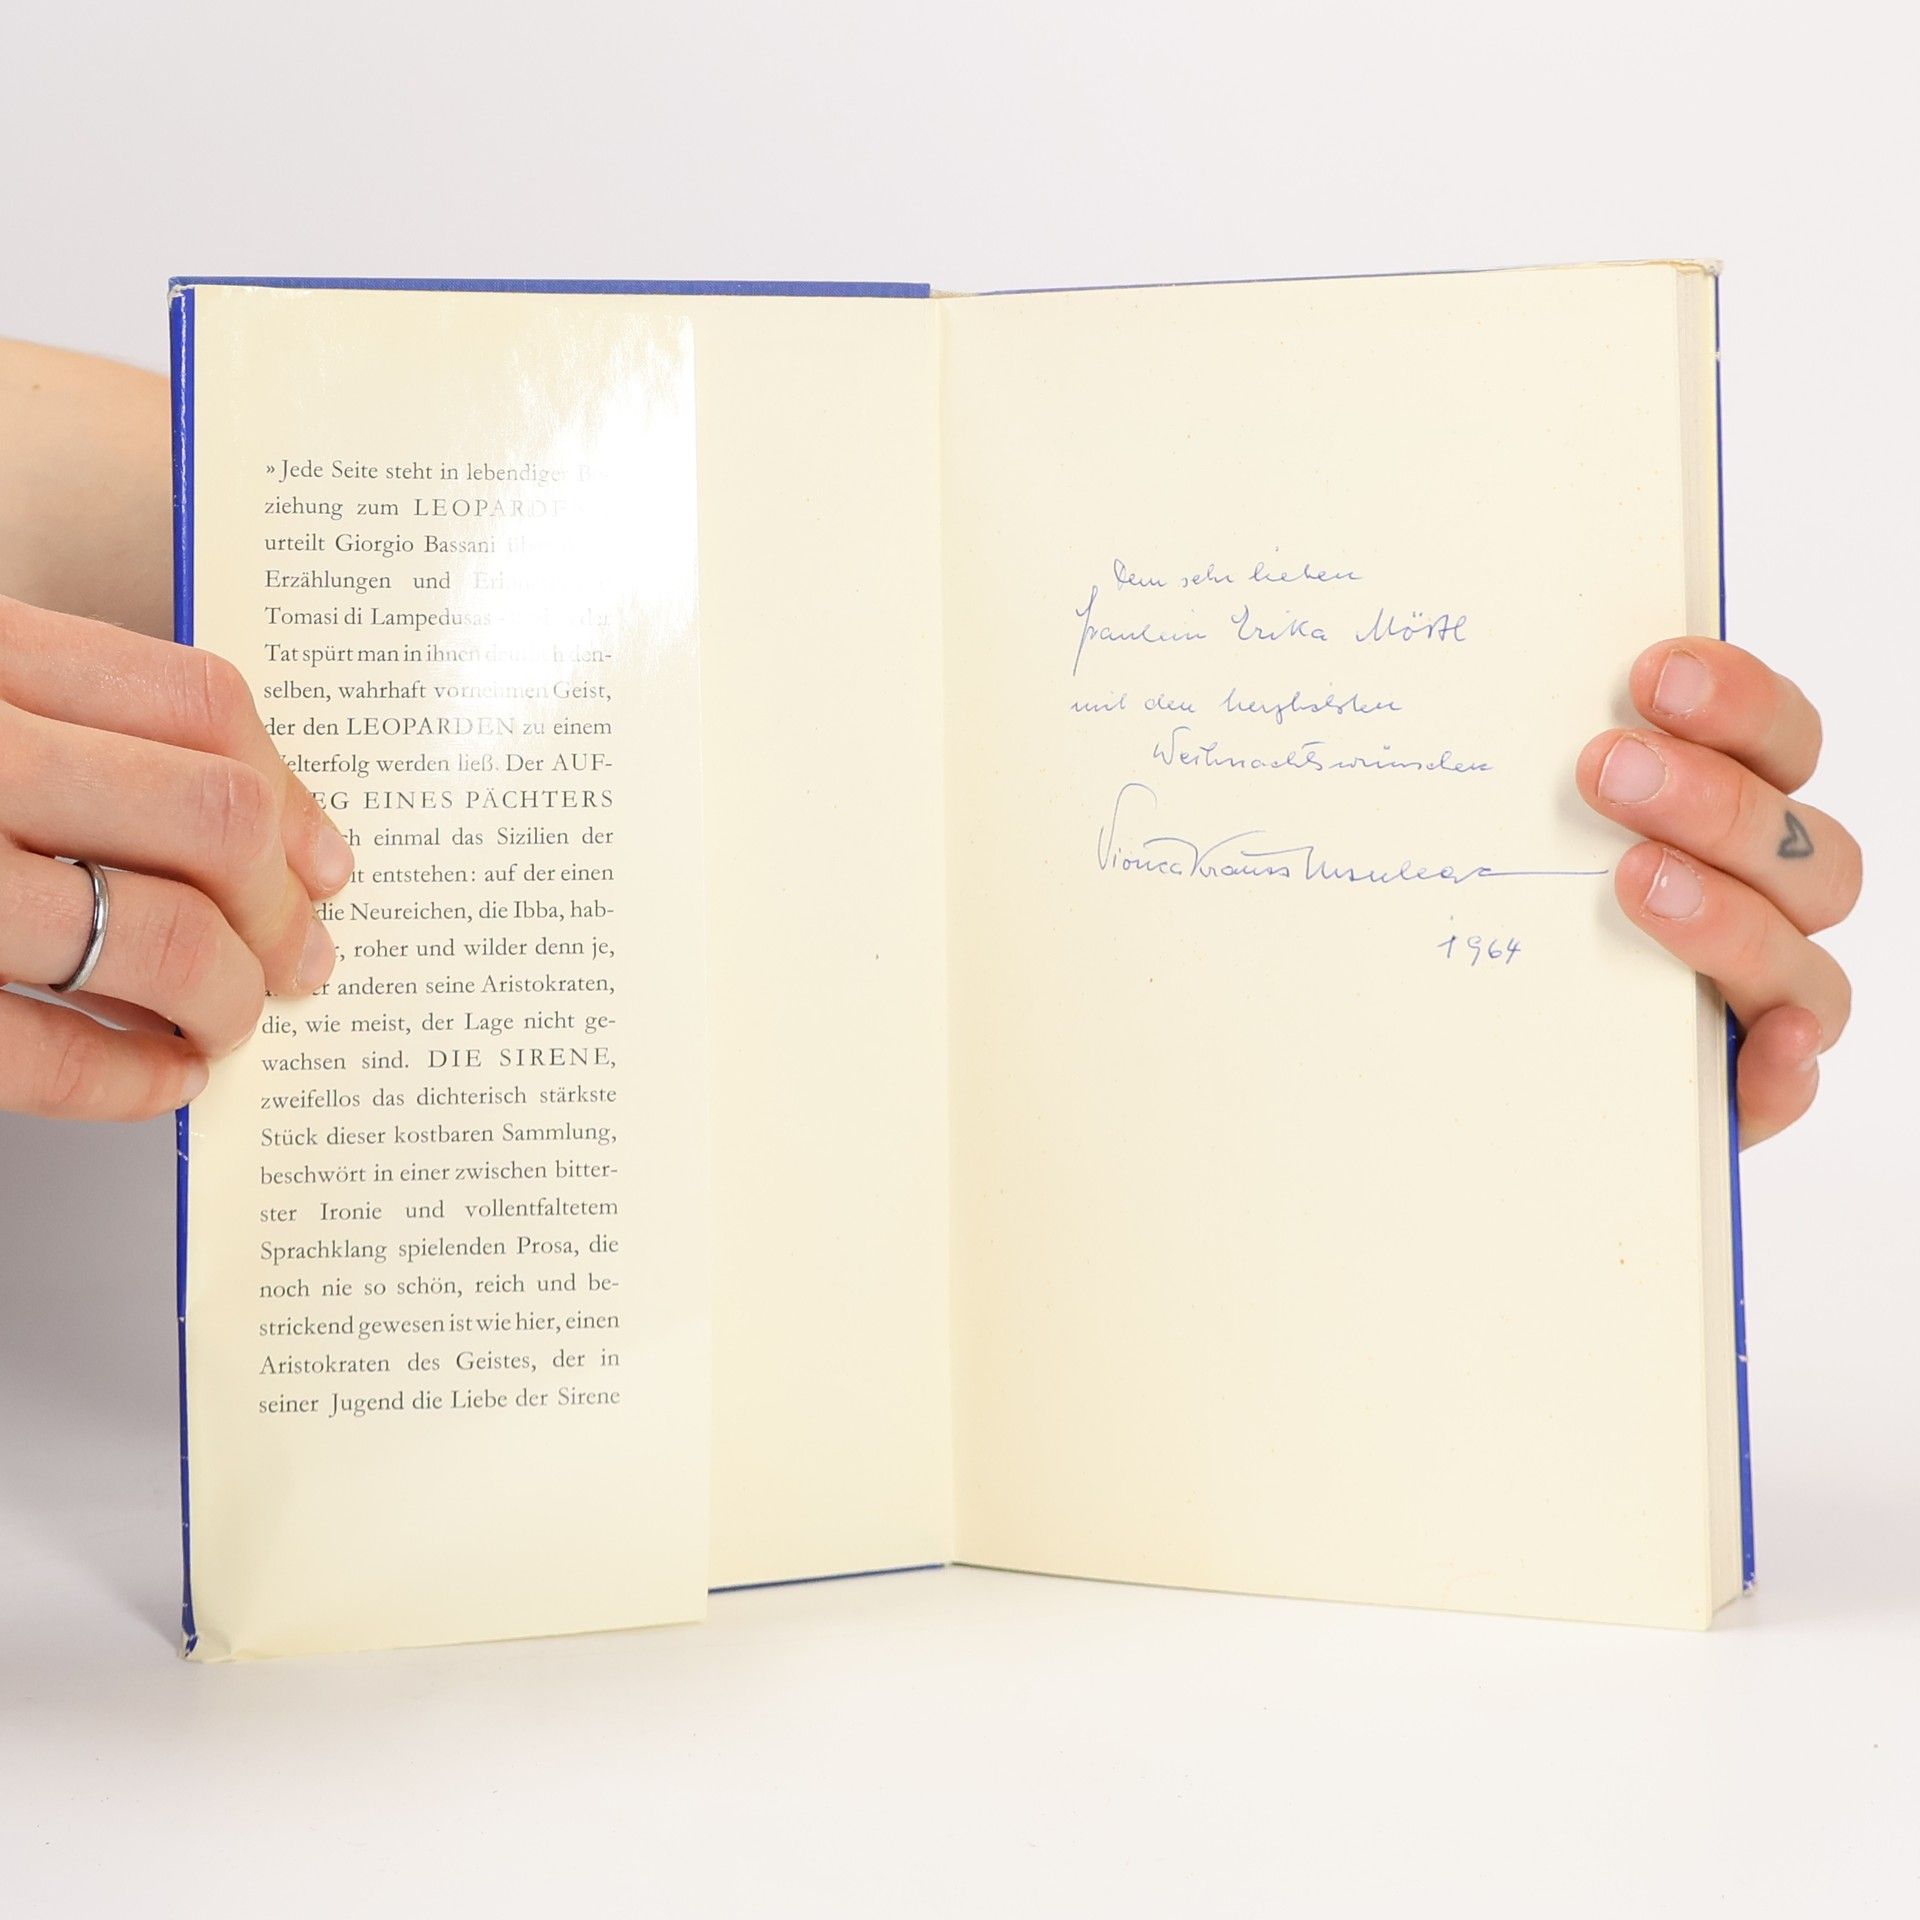 » Jede Seite steht in lebendiger
ziehung zum LEOPARDEN
urteilt Giorgio Bassani
Erzählungen und
Tomasi di Lampedusas
Tat spürt man in ihnen deutlich den-
selben, wahrhaft vornehmen Geist,
der den LEOPARDEN zu einem
Welterfolg werden ließ. Der AUF-
EG EINES PÄCHTERS
ch einmal das Sizilien der
it entstehen: auf der einen
die Neureichen, die Ibba, hab-
roher und wilder denn je,
anderen seine Aristokraten,
die, wie meist, der Lage nicht ge-
wachsen sind. DIE SIRENE,
zweifellos das dichterisch stärkste
Stück dieser kostbaren Sammlung,
beschwört in einer zwischen bitter-
ster Ironie und vollentfaltetem
Sprachklang spielenden Prosa, die
noch nie so schön, reich und be-
strickend gewesen ist wie hier, einen
Aristokraten des Geistes, der in
seiner Jugend die Liebe der Sirene
Dem sehr lieben
Fräulein Erika Möstl
mit den herzlichsten
Weihnachtswünschen
1964